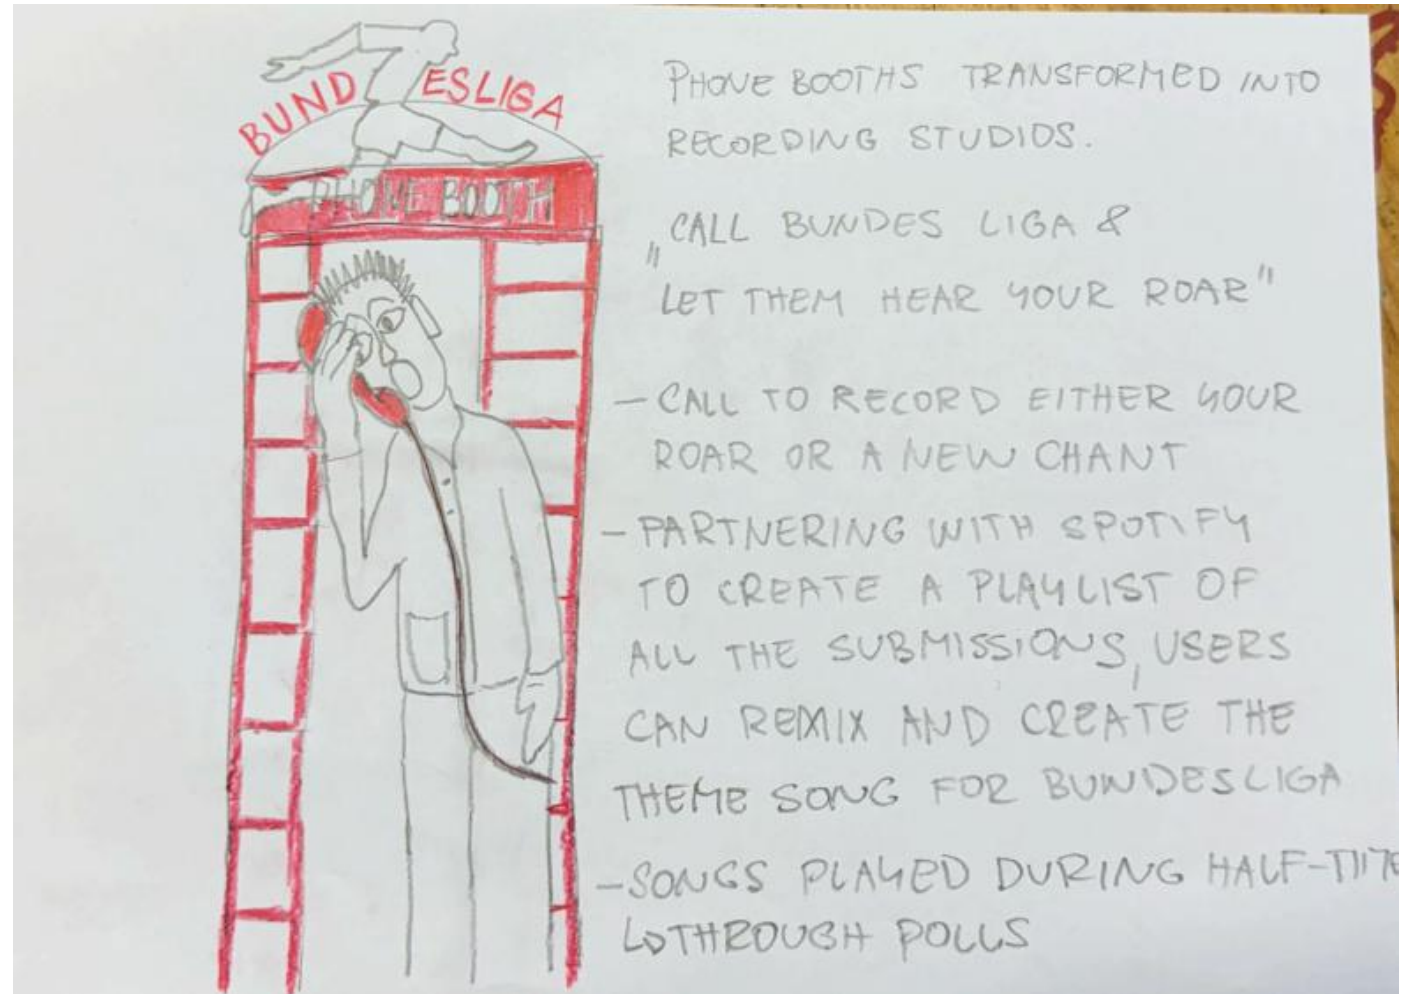 BUNDESLIGA
PHONE BOOTH
PHONE BOOTHS TRANSFORMED INTO
RECORDING STUDIOS.
„CALL BUNDES LIGA &
LET THEM HEAR YOUR ROAR"
- CALL TO RECORD EITHER YOUR
ROAR OR A NEW CHANT
- PARTNERING WITH SPOTIFY
TO CREATE A PLAYLIST OF
ALL THE SUBMISSIONS, USERS
CAN REMIX AND CREATE THE
THEME SONG FOR BUNDESLIGA
- SONGS PLAYED DURING HALF-TIME
↳ THROUGH POLLS